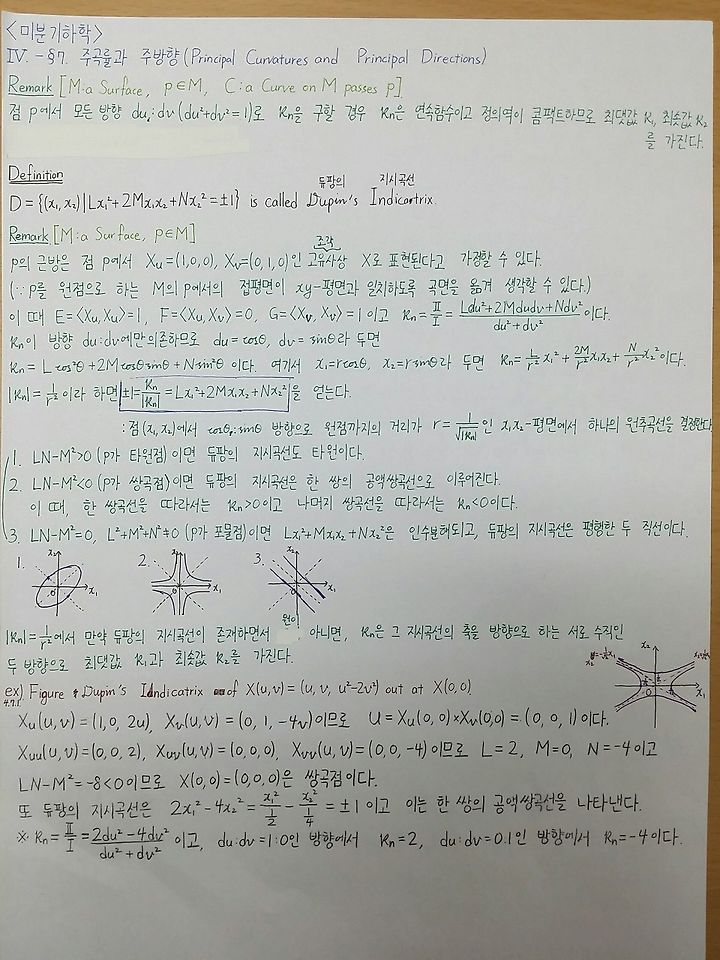 <미분기하학>
IV. -§7. 주곡률과 주방향 (Principal Curvatures and Principal Directions)
Remark [M:a Surface, p∈M, C:a Curve on M passes p]
점 p에서 모든 방향 du:dv (du²+dv²=1)로 κn을 구할 경우 κn은 연속함수이고 정의역이 콤팩트하므로 최댓값 κ₁, 최솟값 κ₂
를 가진다.
Definition
듀팡의 지시곡선
D={(x₁, x₂)|Lx₁²+2Mx₁x₂+Nx₂²=±1} is called Dupin's Indicatrix.
Remark [M:a Surface, p∈M]
조각
p의 근방은 점 p에서 Xu=(1,0,0), Xv=(0,1,0)인 고유사상 X로 표현된다고 가정할 수 있다.
(∵ p를 원점으로 하는 M의 p에서의 접평면이 xy-평면과 일치하도록 곡면을 옮겨 생각할 수 있다.)
이 때 E=<Xu, Xu>=1, F=<Xu, Xv>=0, G=<Xv, Xv>=1이고 κn=Ⅱ/Ⅰ=(Ldu²+2Mdudv+Ndv²)/(du²+dv²)이다.
κn이 방향 du:dv에만 의존하므로 du=cosθ, dv=sinθ라 두면
κn=Lcos²θ+2Mcosθsinθ+Nsin²θ이다. 여기서 x₁=rcosθ, x₂=rsinθ라 두면 κn=L/r² x₁²+2M/r² x₁x₂+N/r² x₂²이다.
|κn|=1/r²이라 하면 ±1=κn/|κn|=Lx₁²+2Mx₁x₂+Nx₂²을 얻는다.
:점(x₁, x₂)에서 cosθ:sinθ 방향으로 원점까지의 거리가 r=1/√|κn|인 x₁x₂-평면에서 하나의 원추곡선을 결정한다.
1. LN-M²>0 (p가 타원점)이면 듀팡의 지시곡선도 타원이다.
2. LN-M²<0 (p가 쌍곡점)이면 듀팡의 지시곡선은 한 쌍의 공액쌍곡선으로 이루어진다.
이 때, 한 쌍곡선을 따라서는 κn>0이고 나머지 쌍곡선을 따라서는 κn<0이다.
3. LN-M²=0, L²+M²+N²≠0 (p가 포물점)이면 Lx₁²+Mx₁x₂+Nx₂²은 인수분해되고, 듀팡의 지시곡선은 평행한 두 직선이다.
1. x₂ 0 x₁ 2. x₂ 0 x₁ 3. x₂ 0 x₁
|κn|=1/r²에서 만약 듀팡의 지시곡선이 존재하면서 원이 아니면, κn은 그 지시곡선의 축을 방향으로 하는 서로 수직인
두 방향으로 최댓값 κ₁과 최솟값 κ₂를 가진다.
x₂ 0 x₁
ex) Figure Dupin's Indicatrix of X(u,v)=(u, v, u²-2v²) out at X(0,0).
4.7.1
Xu(u,v)=(1, 0, 2u), Xv(u,v)=(0, 1, -4v)이므로 U=Xu(0,0)×Xv(0,0)=(0, 0, 1)이다.
Xuu(u,v)=(0, 0, 2), Xuv(u,v)=(0, 0, 0), Xvv(u,v)=(0, 0, -4)이므로 L=2, M=0, N=-4이고
LN-M²=-8<0이므로 X(0,0)=(0,0,0)은 쌍곡점이다.
또 듀팡의 지시곡선은 2x₁²-4x₂²=x₁²/(1/2)-x₂²/(1/4)=±1이고 이는 한 쌍의 공액쌍곡선을 나타낸다.
※ κn=Ⅱ/Ⅰ=(2du²-4dv²)/(du²+dv²)이고, du:dv=1:0인 방향에서 κn=2, du:dv=0:1인 방향에서 κn=-4이다.